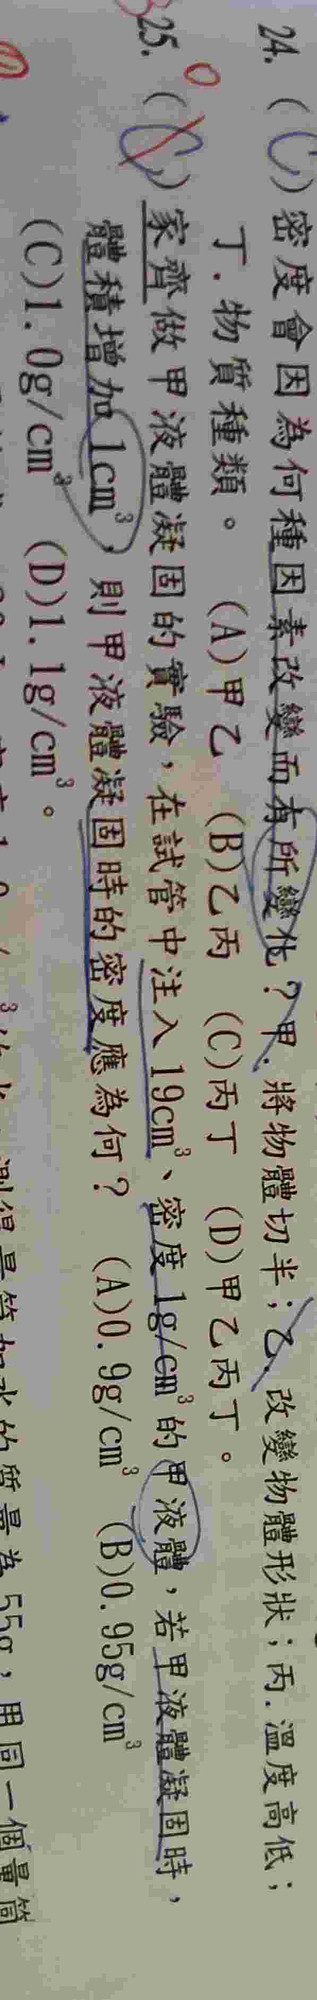 24. (C) 密度會因為何種因素改變而有所變化？甲. 將物體切半；乙. 改變物體形狀；丙. 溫度高低；
丁. 物質種類。 (A)甲乙 (B)乙丙 (C)丙丁 (D)甲乙丙丁。
25. (C) 家齊做甲液體凝固的實驗，在試管中注入19cm³、密度1g/cm³的甲液體，若甲液體凝固時，
體積增加1cm³，則甲液體凝固時的密度應為何？ (A)0.9g/cm³ (B)0.95g/cm³
(C)1.0g/cm³ (D)1.1g/cm³。
測得量筒加水的質量為55g，用同一個量筒